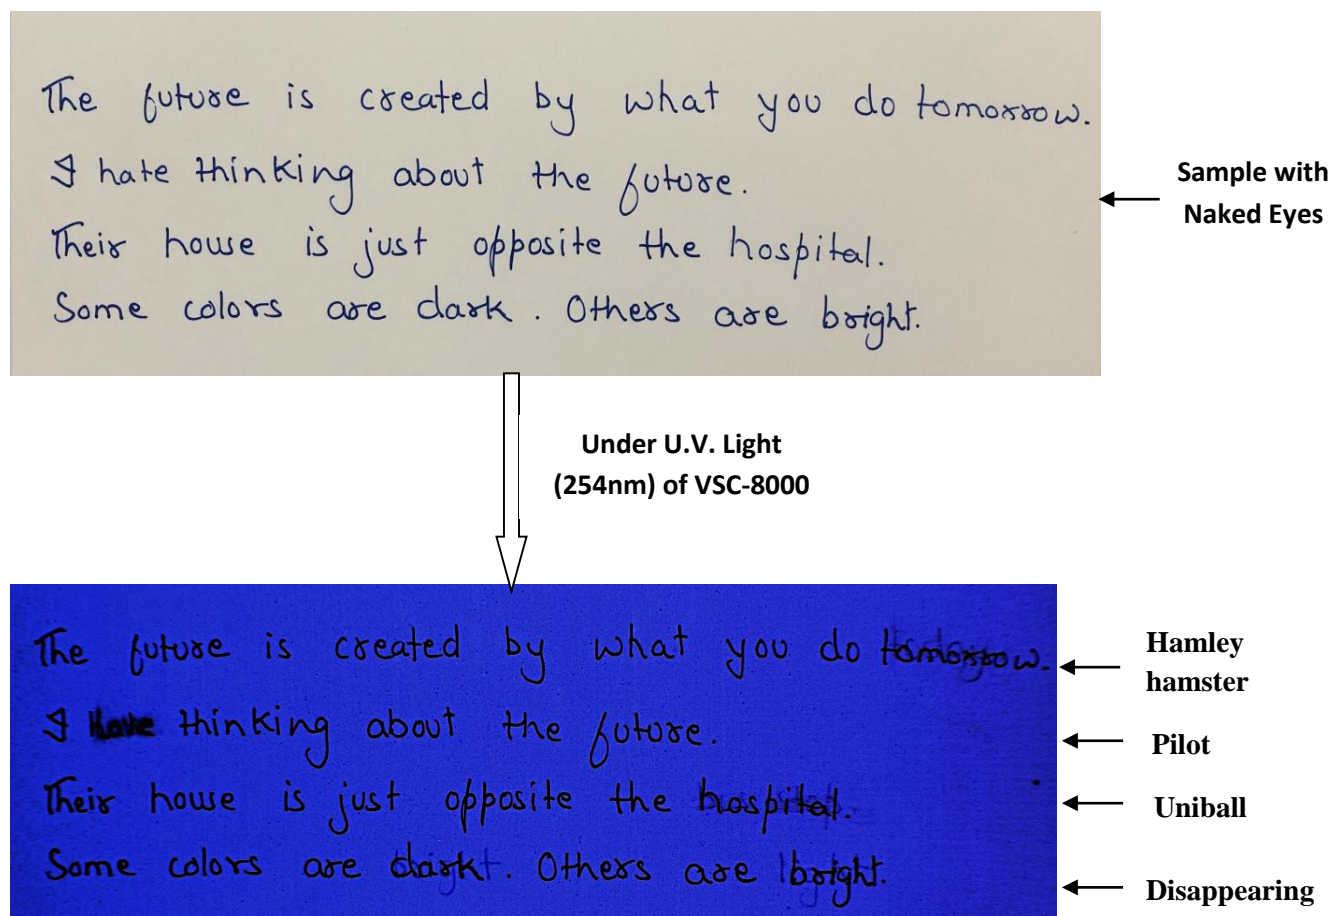 The future is created by what you do tomorrow.
I hate thinking about the future.
Their house is just opposite the hospital.
Some colors are dark. Others are bright.
Sample with
Naked Eyes
Under U.V. Light
(254nm) of VSC-8000
The future is created by what you do tomorrow.
Hamley
hamster
I thinking about the future.
Pilot
Their house is just opposite the hospital.
Uniball
Some colors are dark. Others are bright.
Disappearing